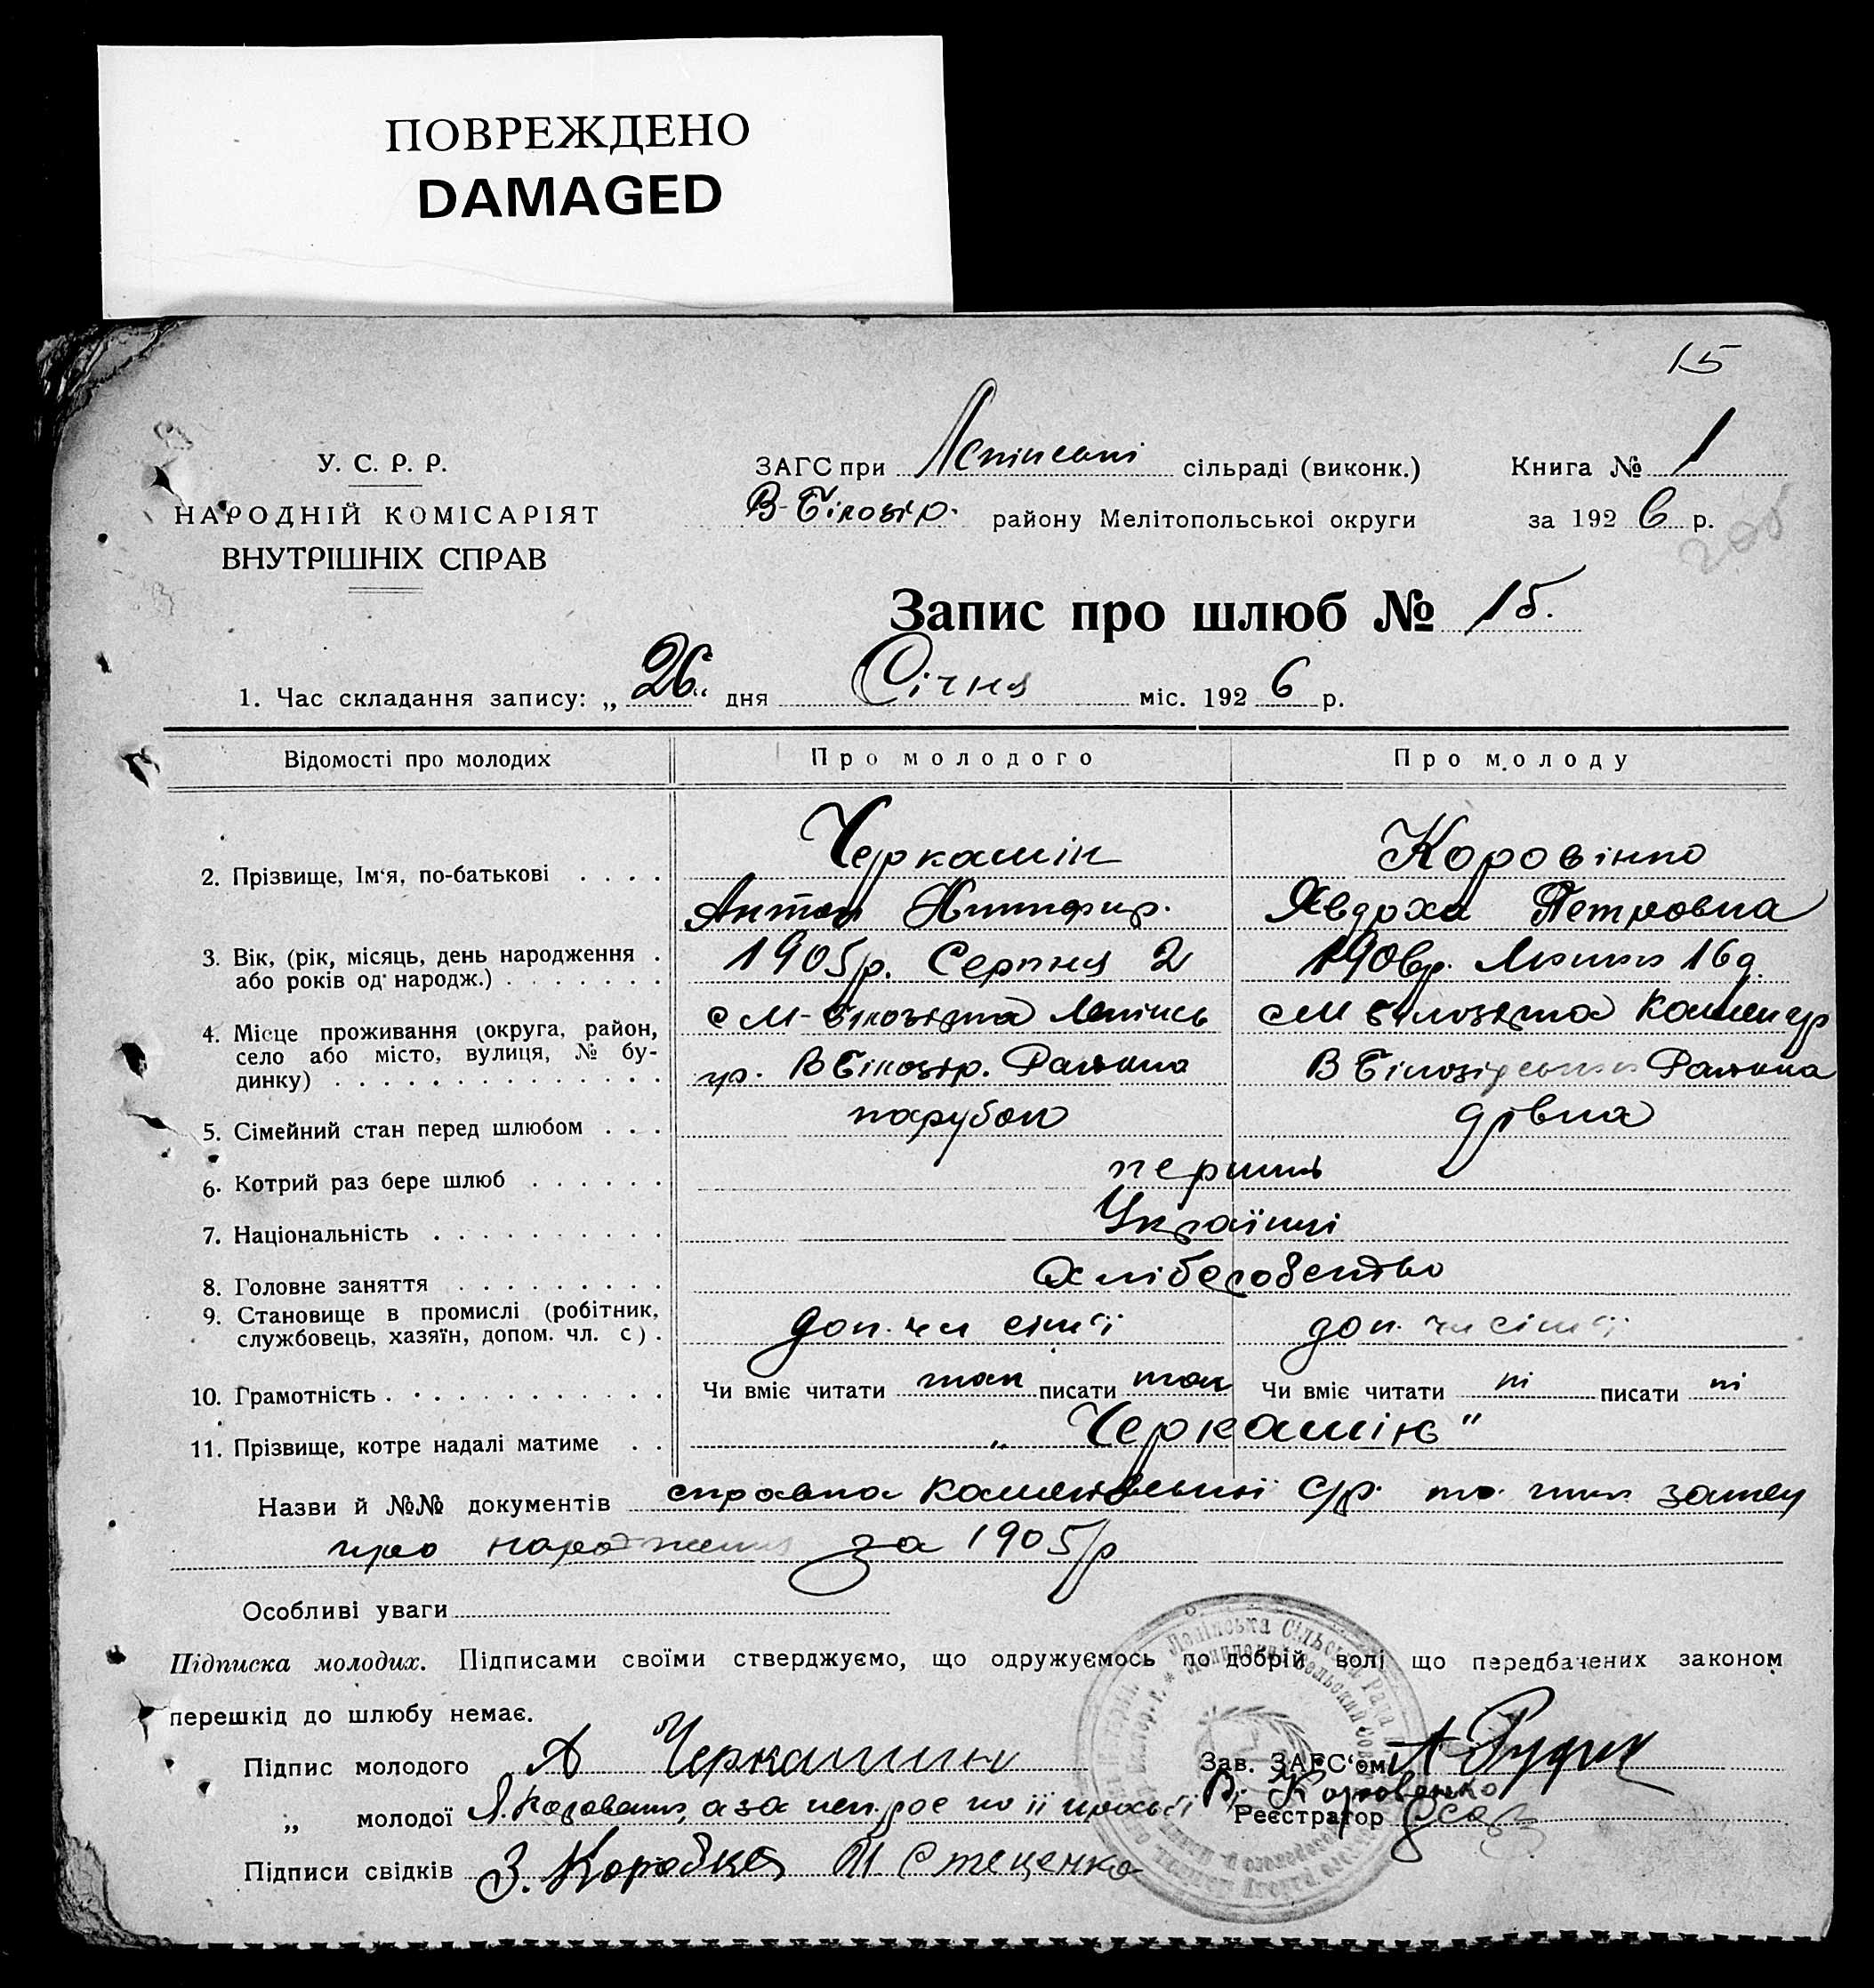 ПОВРЕЖДЕНО
DAMAGED
15
У. С. Р. Р.
НАРОДНІЙ КОМІСАРІЯТ
ВНУТРІШНІХ СПРАВ
ЗАГС при сільраді (виконк.) Книга № 1
В-Білозір. району Мелітопольської округи за 1926 р.
Запис про шлюб № 15.
1. Час складання запису: „26" дня Січня міс. 1926 р.
Відомості про молодих Про молодого Про молоду
2. Прізвище, Ім'я, по-батькові . . . . Черкашін Коровінко
Антон Явдоха Петровна
3. Вік, (рік, місяць, день народження . 1905р. Серпня 2 190 16д.
або років од народж.) . . . . . . .
4. Місце проживання (округа, район, с М-Білозірка с М Білозірка
село або місто, вулиця, № бу-
динку) . . . . . . . . . . . . . . В Білозір. Района В Білозірського Района
5. Сімейний стан перед шлюбом . . . парубок дівка
6. Котрий раз бере шлюб . . . . . . перший
7. Національність . . . . . . . . . . Українці
8. Головне заняття . . . . . . . . . Хліборобство
9. Становище в промислі (робітник,
службовець, хазяїн, допом. чл. с) . доп. чл сім'ї доп. чл сім'ї
10. Грамотність . . . . . . . . . . . . Чи вміє читати так писати так Чи вміє читати ні писати ні
11. Прізвище, котре надалі матиме . . „Черкашін"
Назви й №№ документів справка с/р.
про народження за 1905/р
Особливі уваги
Підписка молодих. Підписами своїми стверджуємо, що одружуємось по добрій волі що передбачених законом
перешкід до шлюбу немає.
Підпис молодого А Черкашин Зав. ЗАГС'ом А
„ молодої а за неї її Коровенко
Реєстратор
Підписи свідків З. Коробка Стеценко